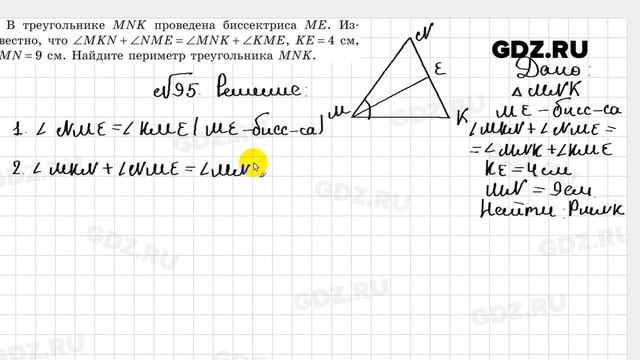 В треугольнике MNK проведена биссектриса ME. Из-
вестно, что ∠MKN + ∠NME = ∠MNK + ∠KME, KE = 4 см,
MN = 9 см. Найдите периметр треугольника MNK.
GDZ.RU
№95. Решение:
1. ∠NME = ∠KME (ME - бисс-са)
2. ∠MKN + ∠NME = ∠MN
M
N
E
K
Дано:
△ MNK
ME - бисс-са
∠MKN + ∠NME =
= ∠MNK + ∠KME
KE = 4 см
MN = 9 см.
Найти: PMNK
GDZ.RU
GDZ.RU
GDZ.RU
GDZ.RU
GDZ.RU
GDZ.RU